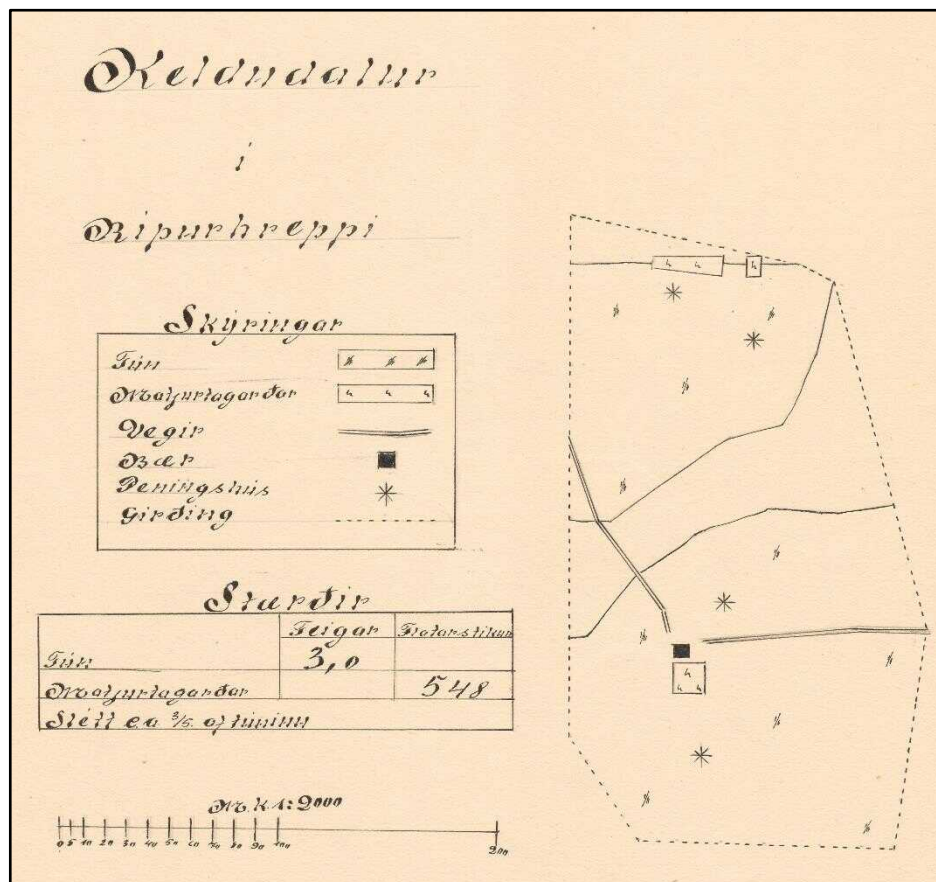 Keldudalur
í
Rípurhreppi
Skýringar
Tún
Matjurtagarðar
Vegir
Bær
Peningshús
Girðing
Stærðir
Teigar Flatarstikur
Tún 3,0
Matjurtagarðar 548
Slétt ca 3/5 af túninu
M.k. 1:2000
0 5 10 20 30 40 50 60 70 80 90 100 200